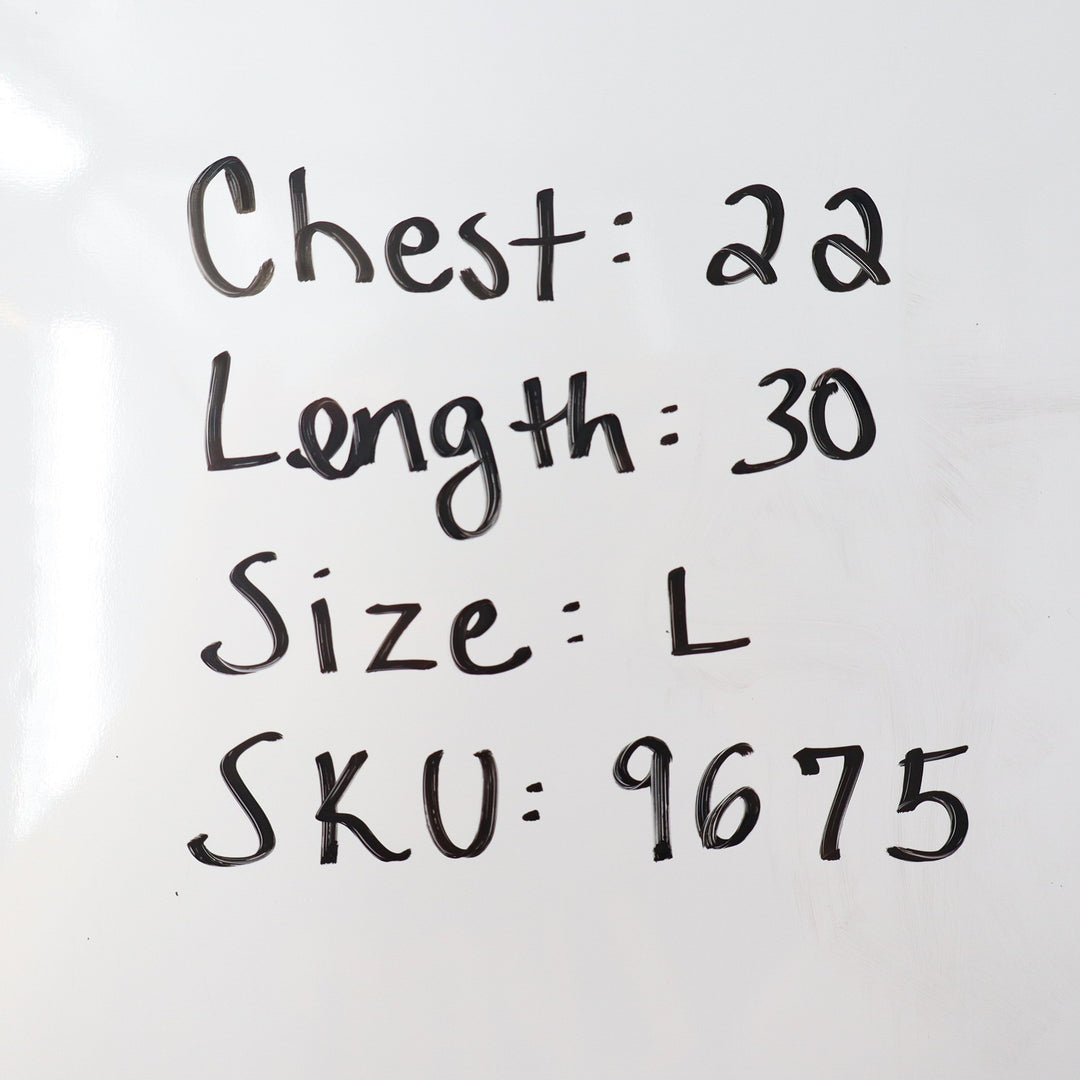 Chest: 22
Length: 30
Size: L
SKU: 9675